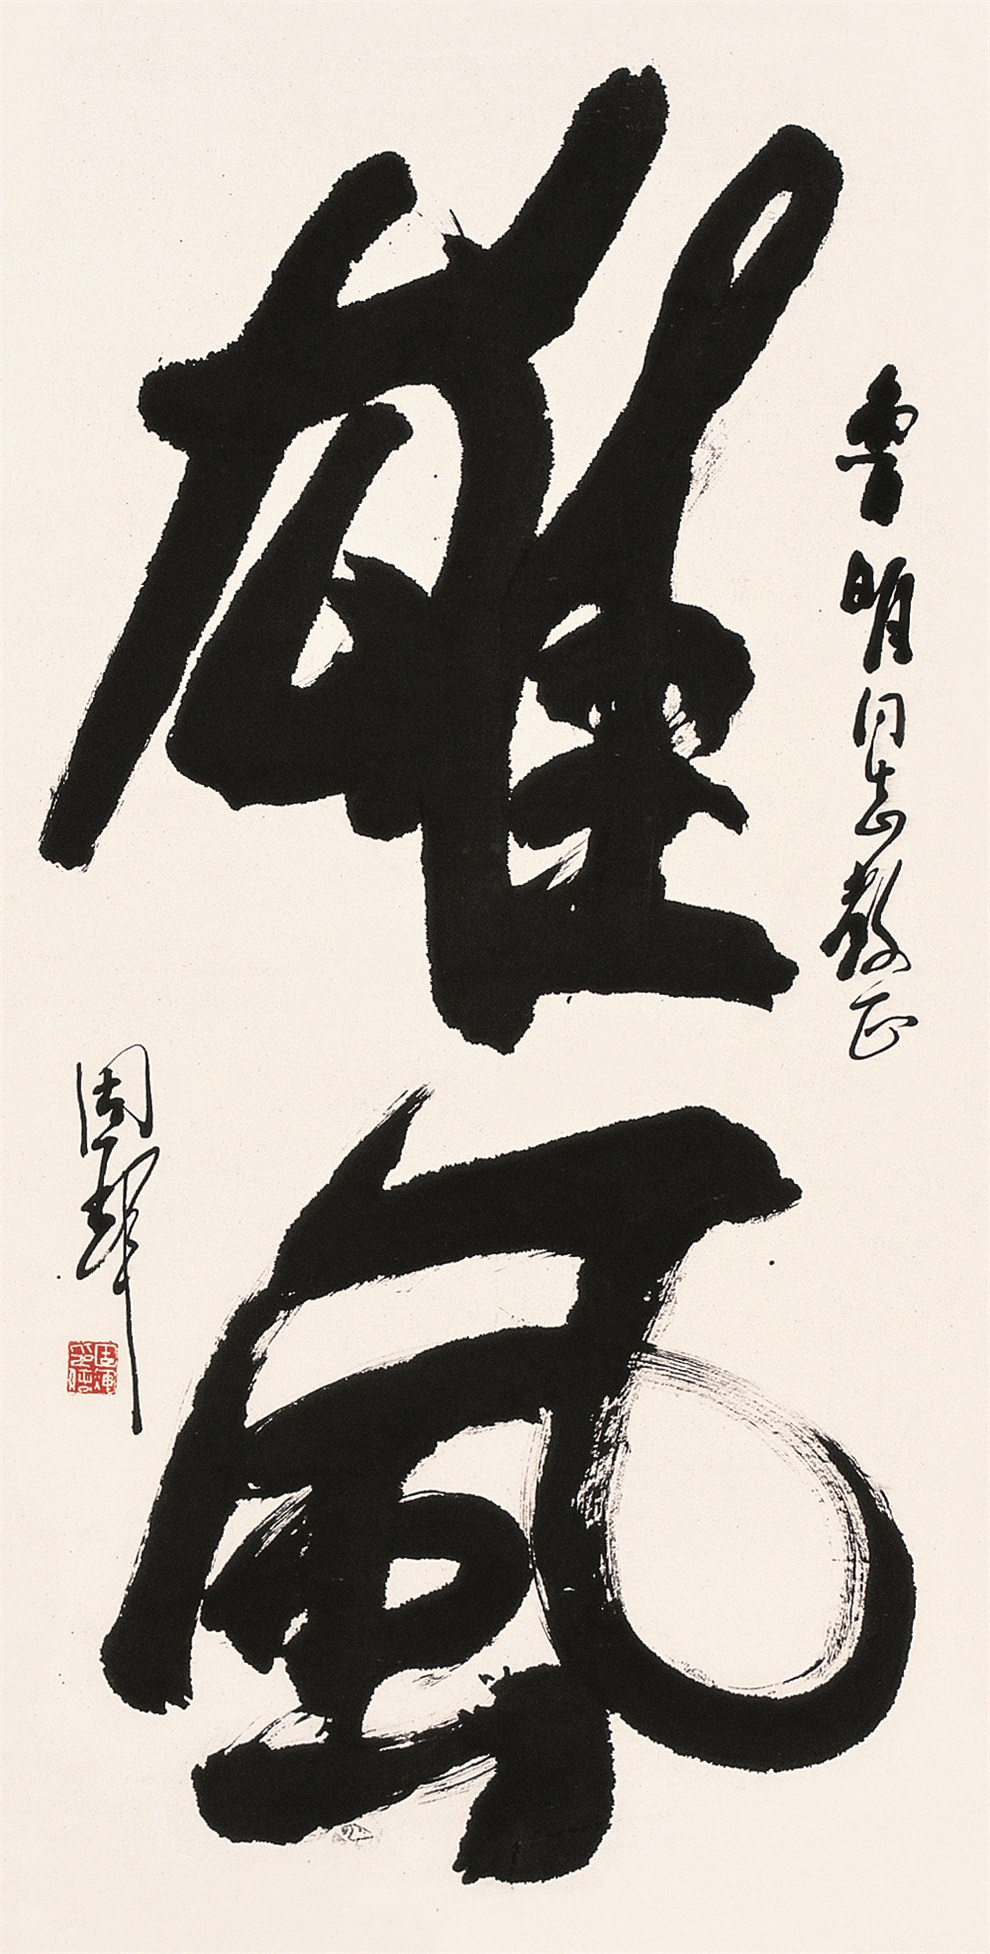 雄風
魯明同志教正
周輝